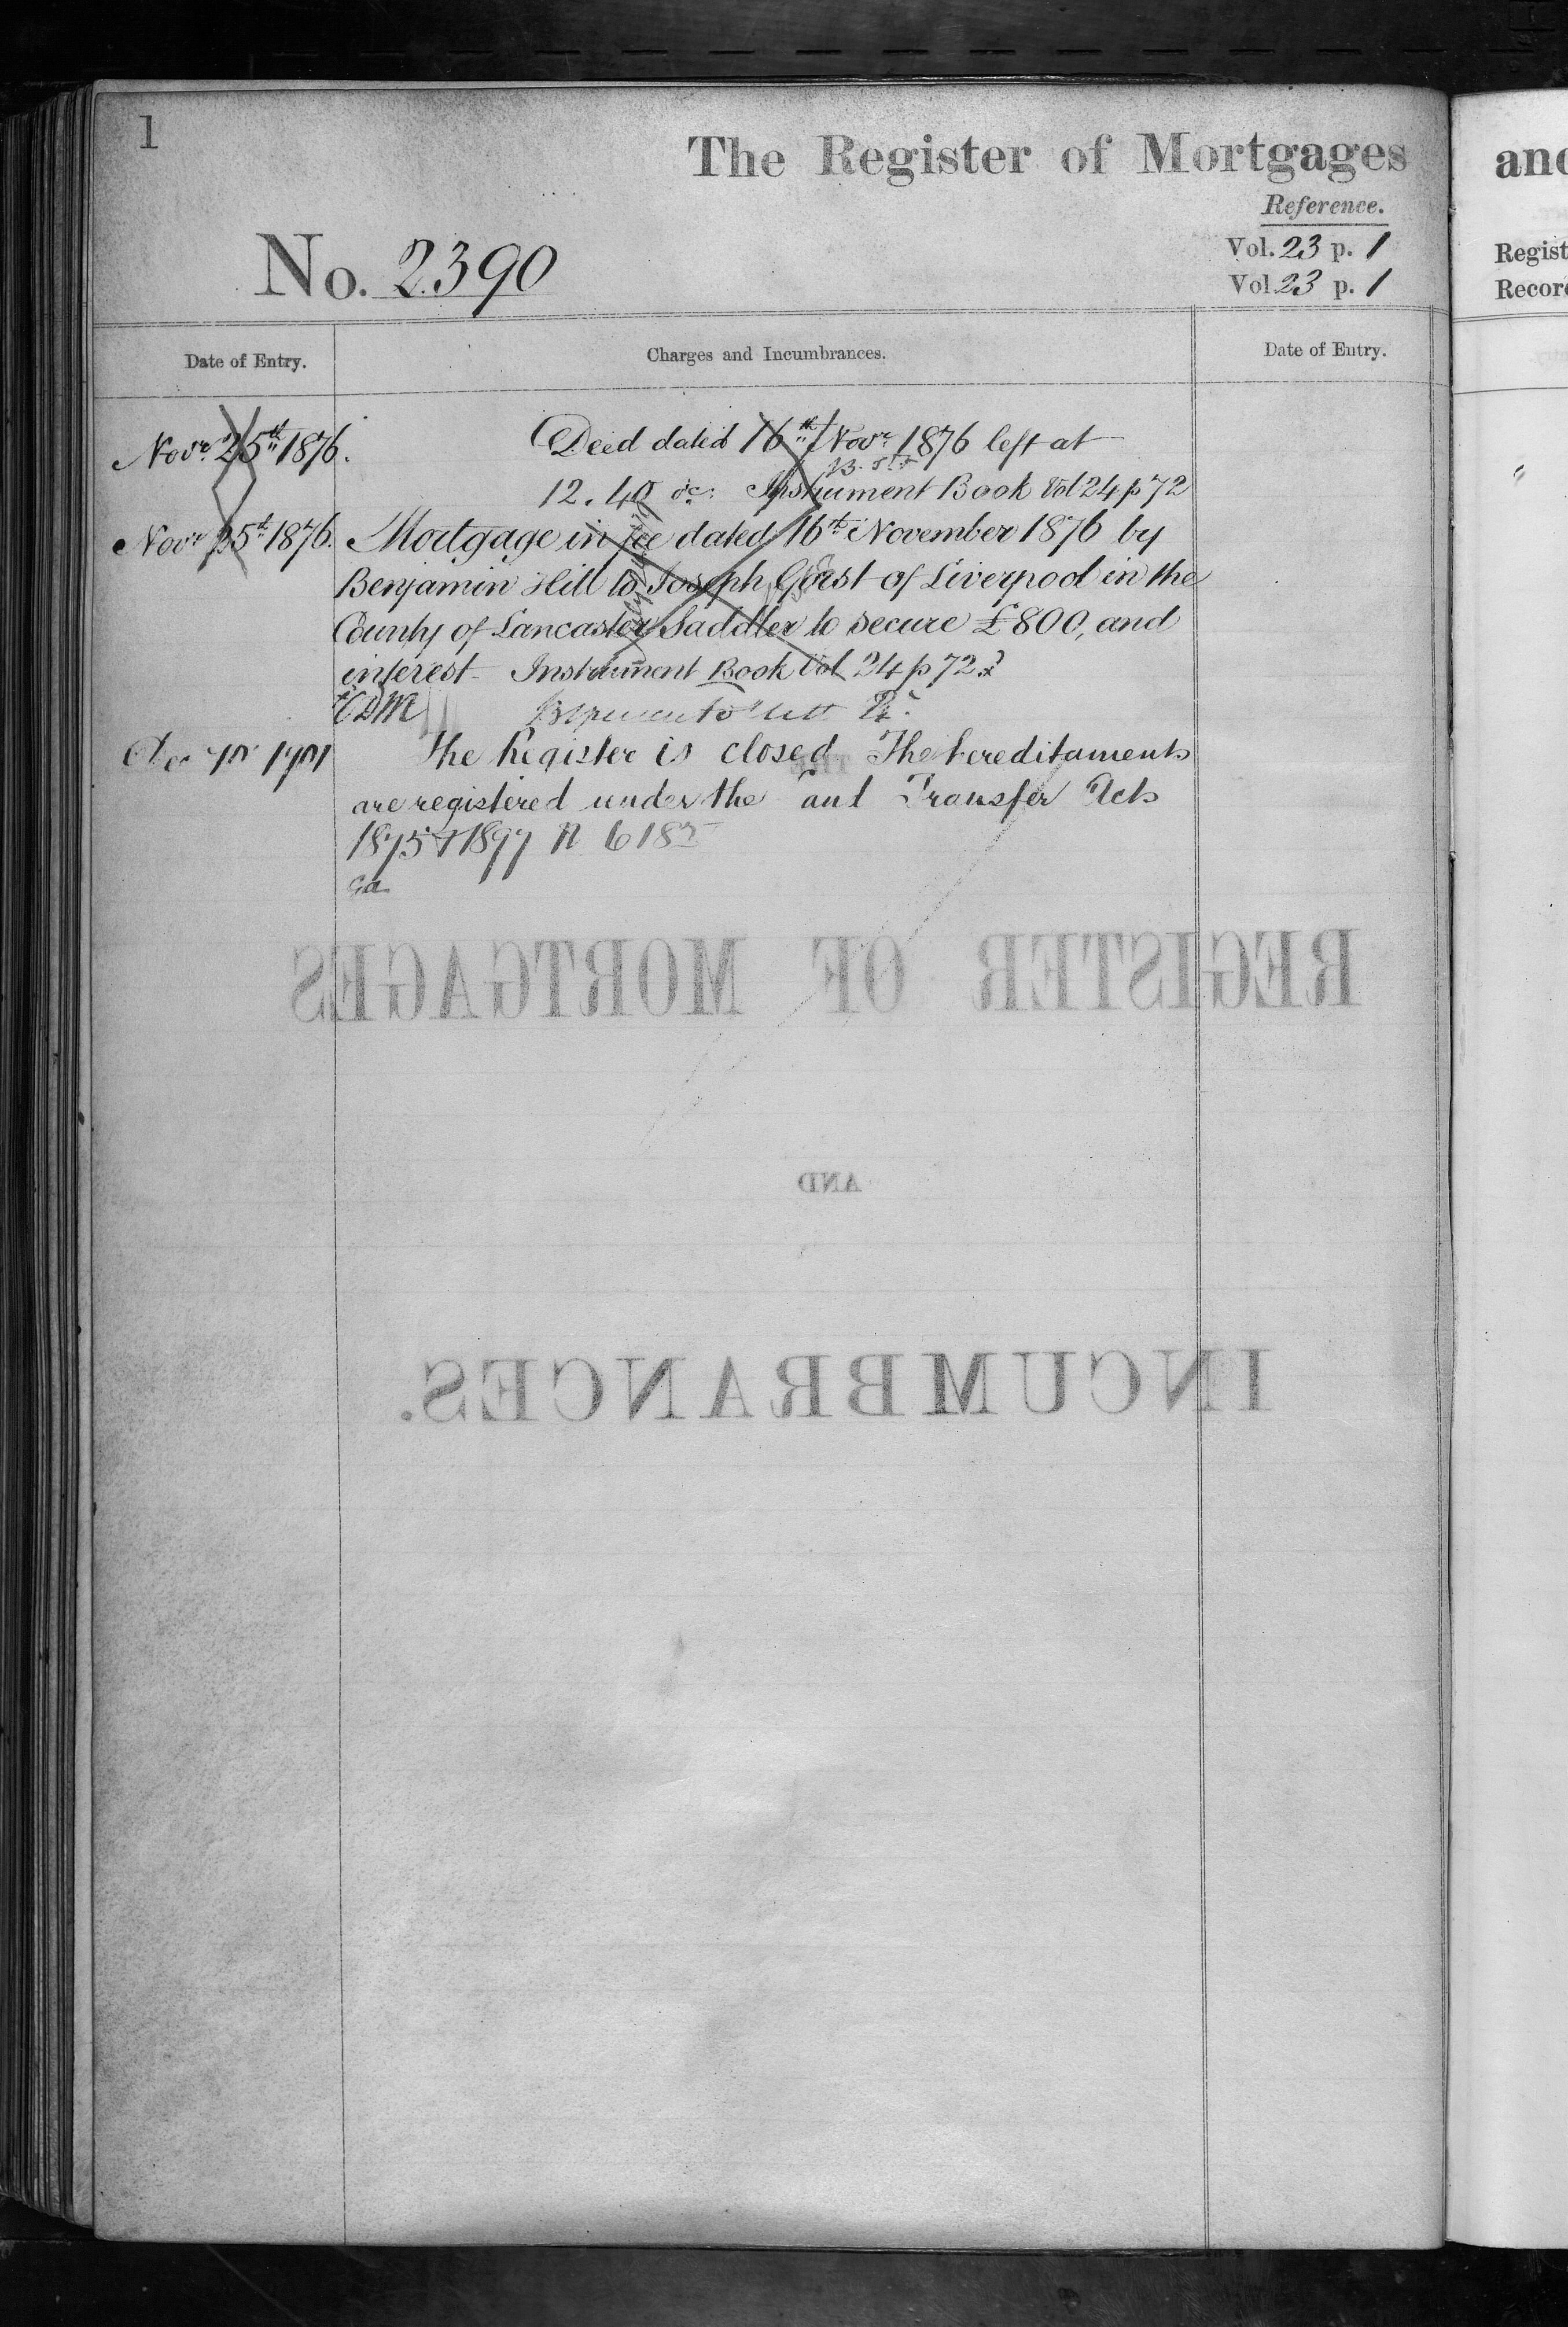 1
The Register of Mortgages
Reference.
No. 2390
Vol. 23 p. 1
Vol 23 p. 1
Date of Entry.
Charges and Incumbrances.
Date of Entry.
Novr. 25th 1876.
Deed dated 16th Novr 1876 left at
12.40 Instrument Book Vol 24 p 72
Novr 25th 1876.
Mortgage in fee dated 16th November 1876 by
Benjamin Hill to Joseph Gorst of Liverpool in the
County of Lancaster Saddler to secure £800, and
interest - Instrument Book Vol 24 p 72
EDM
1901
The Register is closed The hereditaments
are registered under the Transfer Acts
1875 & 1897
REGISTER OF MORTGAGES
AND
INCUMBRANCES.
and
Regist
Recor